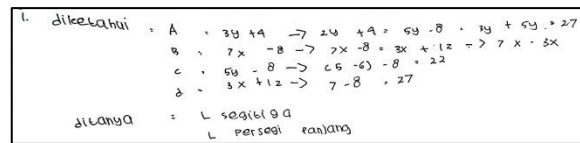 1. diketahui : A = 3y +4 -> 2y +4 = 5y -8 = 3y + 5y = 27
B = 7x -8 -> 7x -8 = 3x +12 -> 7x - 3x
c = 5y - 8 -> (5 -6) -8 = 22
d = 3x +12 -> 7 -8 = 27
ditanya = L segitiga
L persegi panjang